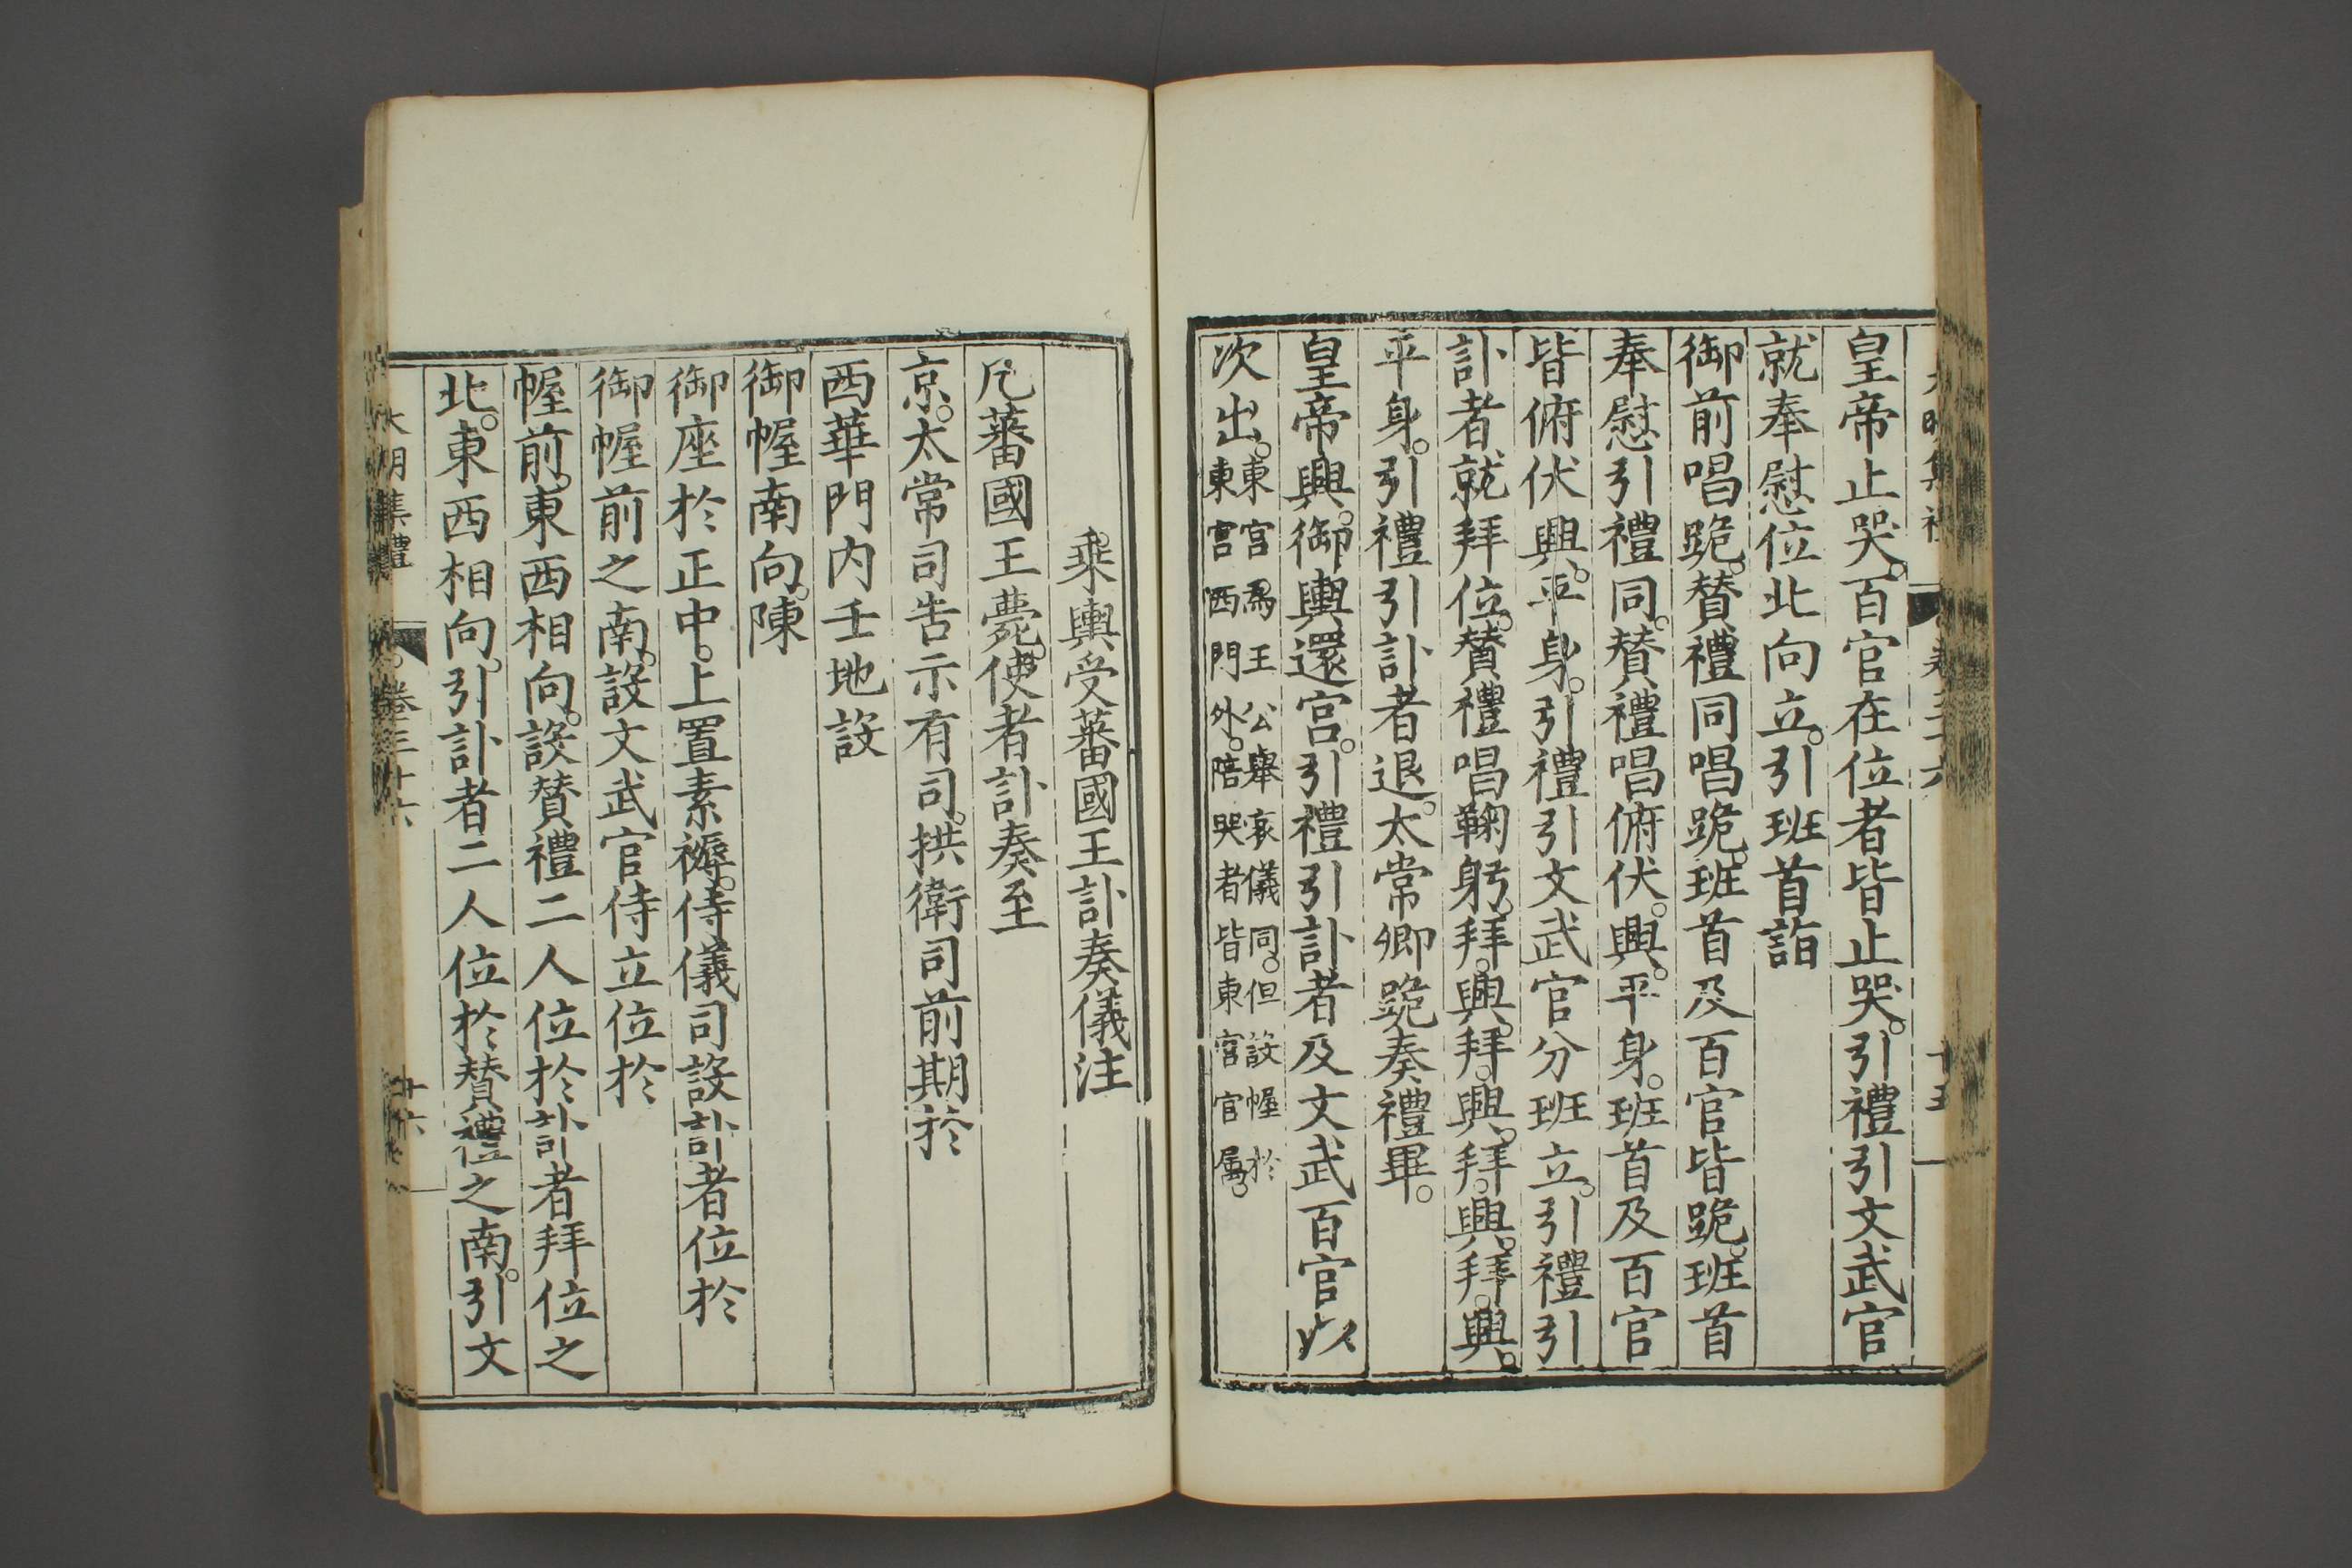 皇帝止哭。百官在位者皆止哭。引禮引文武官
就奉慰位北向立。引班首詣
御前唱跪。賛禮同唱跪。班首及百官皆跪。班首
奉慰引禮同。賛禮唱俯伏。興。平身。班首及百官
皆俯伏興。平身。引禮引文武官分班立。引禮引
訃者就拜位。賛禮唱鞠躬。拜。興。拜。興。拜。興。拜。興。
平身。引禮引訃者退。太常卿跪奏禮畢。
皇帝興。御輿還宮。引禮引訃者及文武百官以
次出。東宮爲王公舉哀儀同。但設幄於
東宮西門外。陪哭者皆東宮官属。
乗輿受蕃國王訃奏儀注
凡蕃國王薨。使者訃奏至
京。太常司告示有司。拱衛司前期於
西華門内壬地設
御幄南向。陳
御座於正中。上置素褥。侍儀司設訃者位於
御幄前之南。設文武官侍立位於
幄前。東西相向。設賛禮二人位於訃者拜位之
北。東西相向。引訃者二人位於賛禮之南。引文
大明集禮 卷三十六 十六